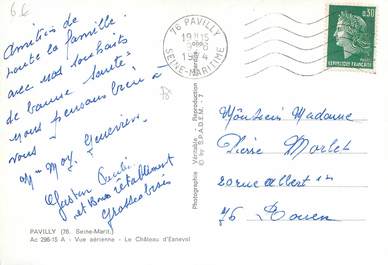 Amitiés de
toute la famille
avec nos souhaits
de bonne santé
nous pensons bien à
vous Geneviève
Mr Moy.
Gaston
et Bon rétablissement
76 PAVILLY
19H15
SEINE-MARITIME
0,30
REPUBLIQUE FRANÇAISE
Photographie Véritable - Reproduction
© by S.P.A.D.E.M. - 7
Monsieur Madame
Pierre Morlet
20 rue Albert 1er
76 Rouen
PAVILLY (76. Seine-Marit.)
Ac 295-15 A : Vue aérienne - Le Château d'Esneval